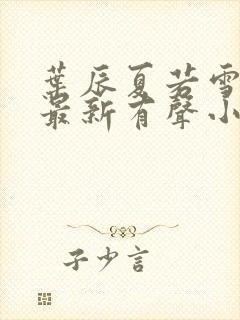 葉辰夏若雪
最新有聲小
子少言